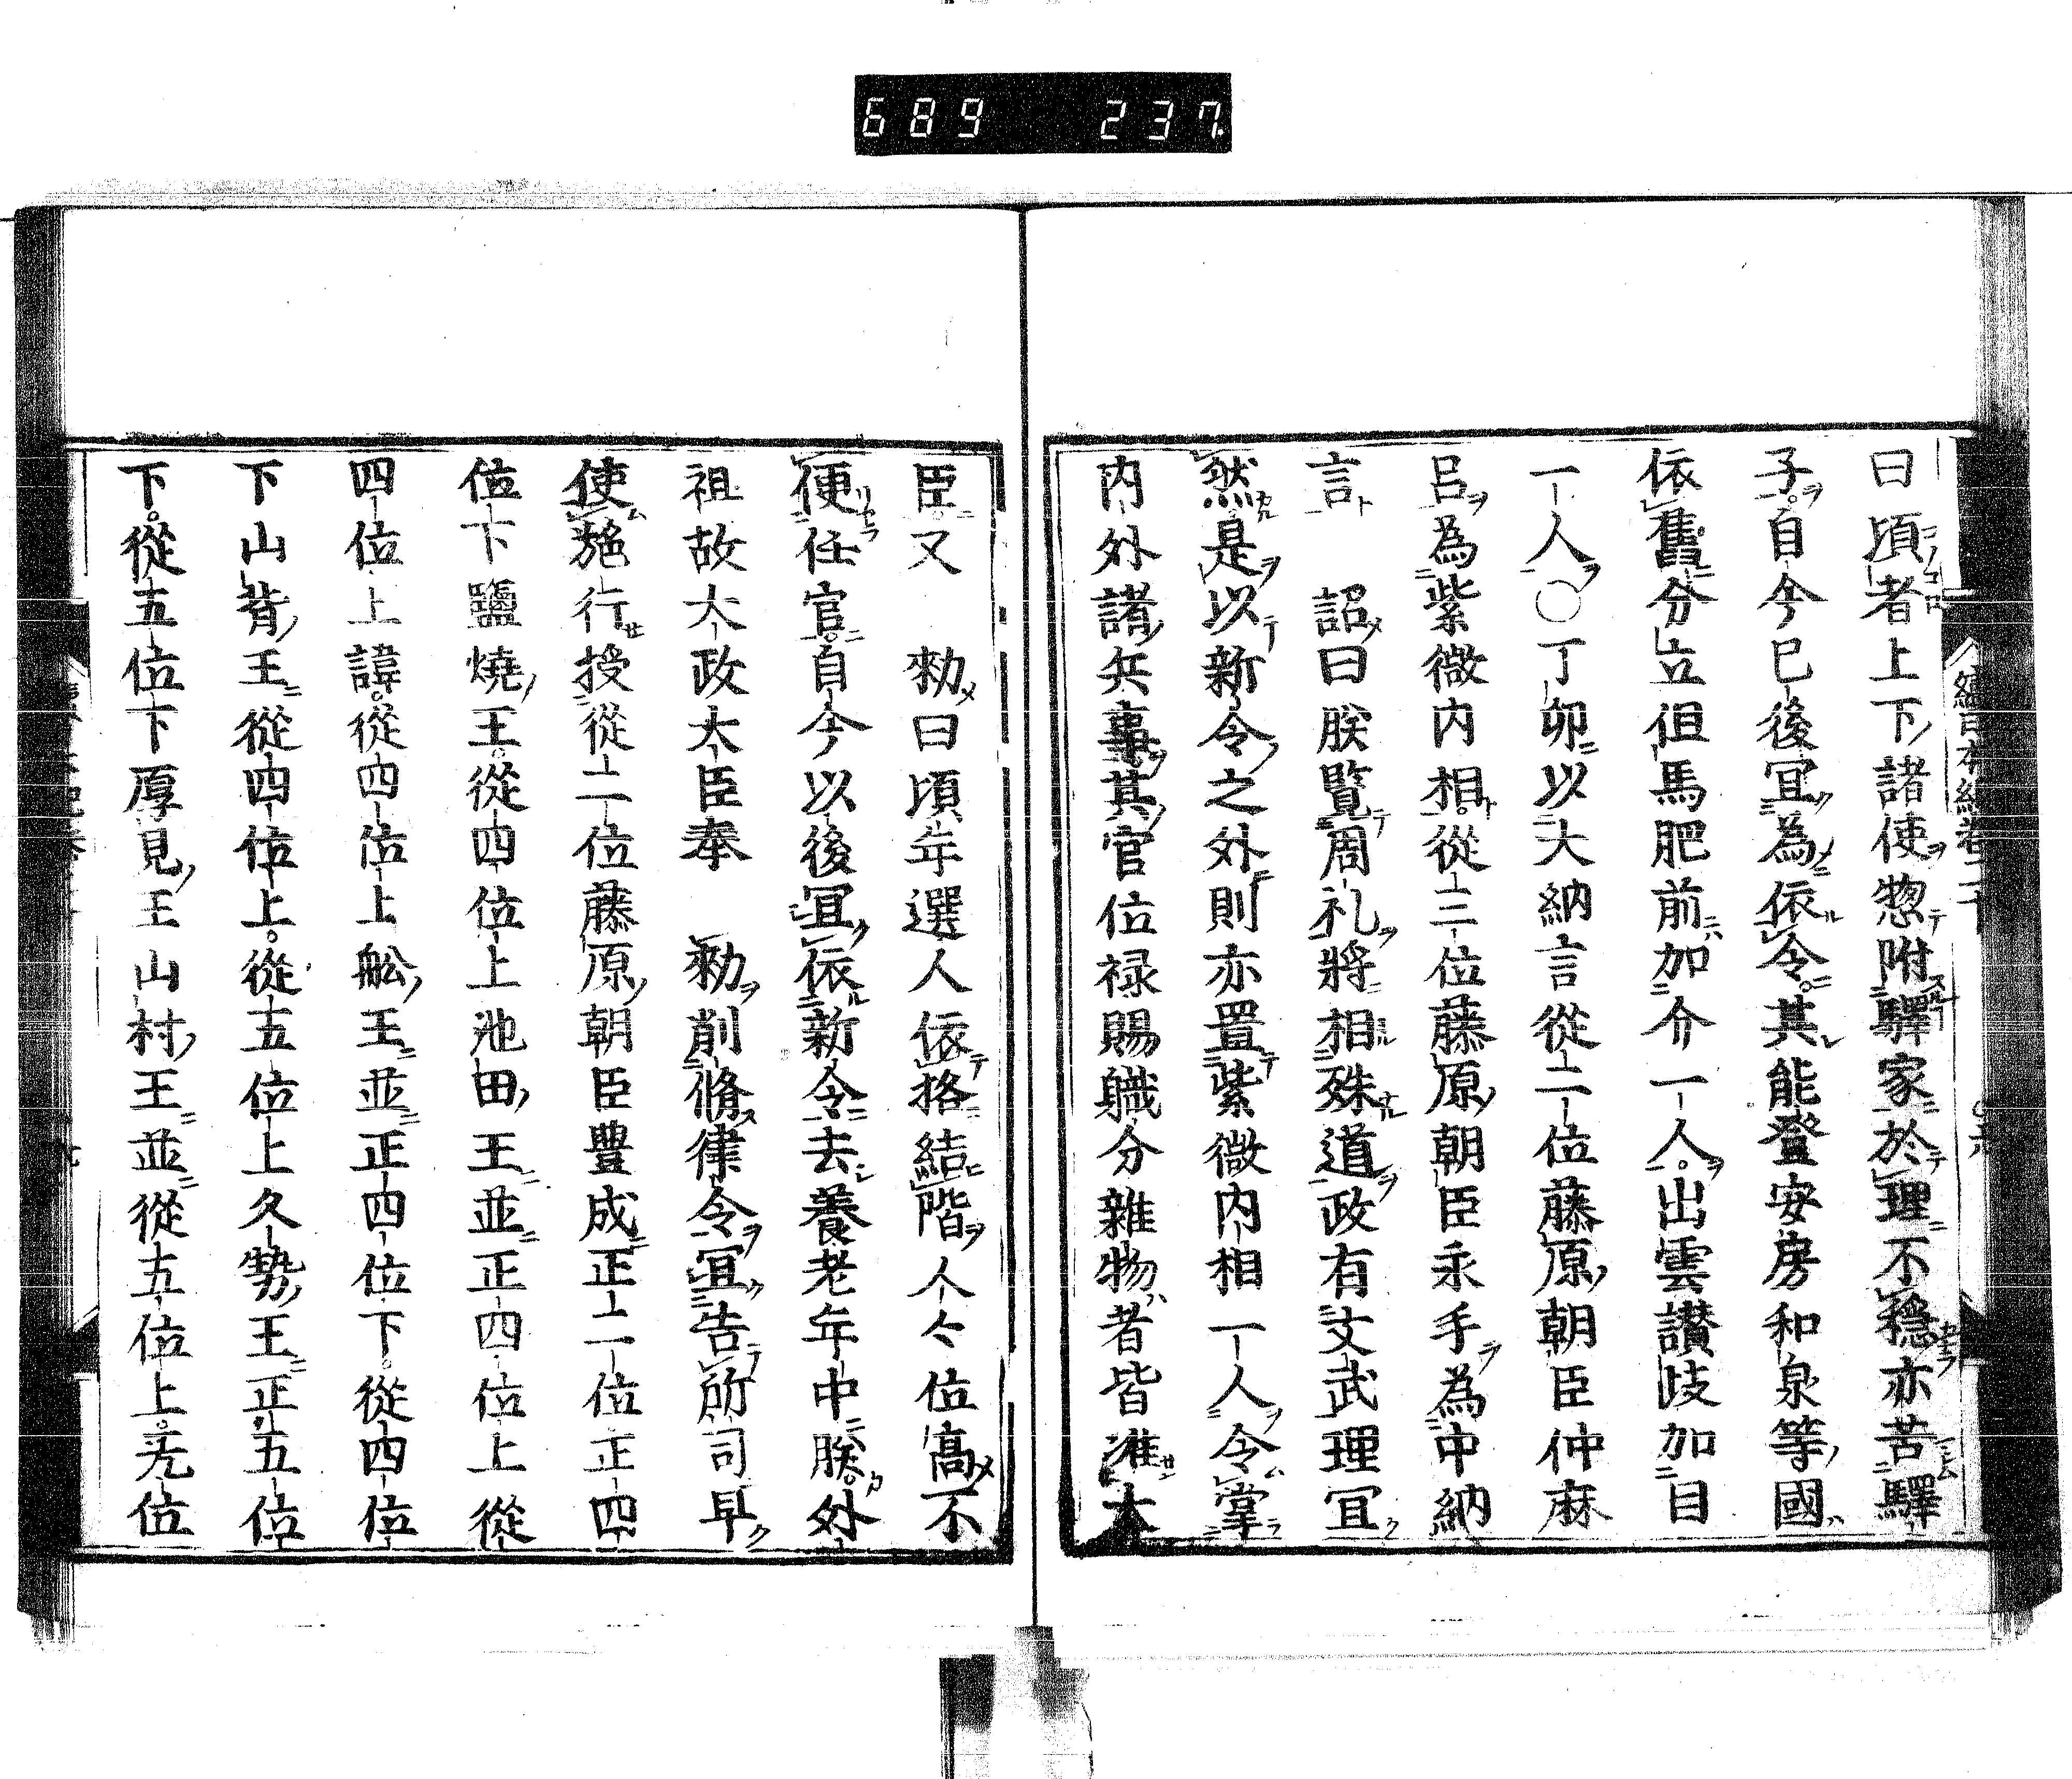 689 237
曰頃者上下諸使惣附驛家於理不穏亦苦驛
子自今已後宜為依令其能登安房和泉等國
依舊分立但馬肥前加介一人出雲讃岐加目
一人○丁卯以大納言從二位藤原朝臣仲麻
呂為紫微内相從三位藤原朝臣永手為中納
言詔曰朕覧周礼將相殊道政有文武理宜
然是以新令之外則亦置紫微内相一人令掌
内外諸兵事其官位禄賜職分雜物者皆准大
臣又勑曰頃年選人依格結階人々位高不
便任官自今以後宜依新令去養老年中朕外
祖故太政大臣奉勑刪脩律令宜告所司早
使施行授從二位藤原朝臣豊成正二位正四
位下鹽燒王從四位上池田王並正四位上從
四位上諱從四位上舩王並正四位下從四位
下山背王從四位上從五位上久勢王正五位
下從五位下厚見王山村王並從五位上旡位